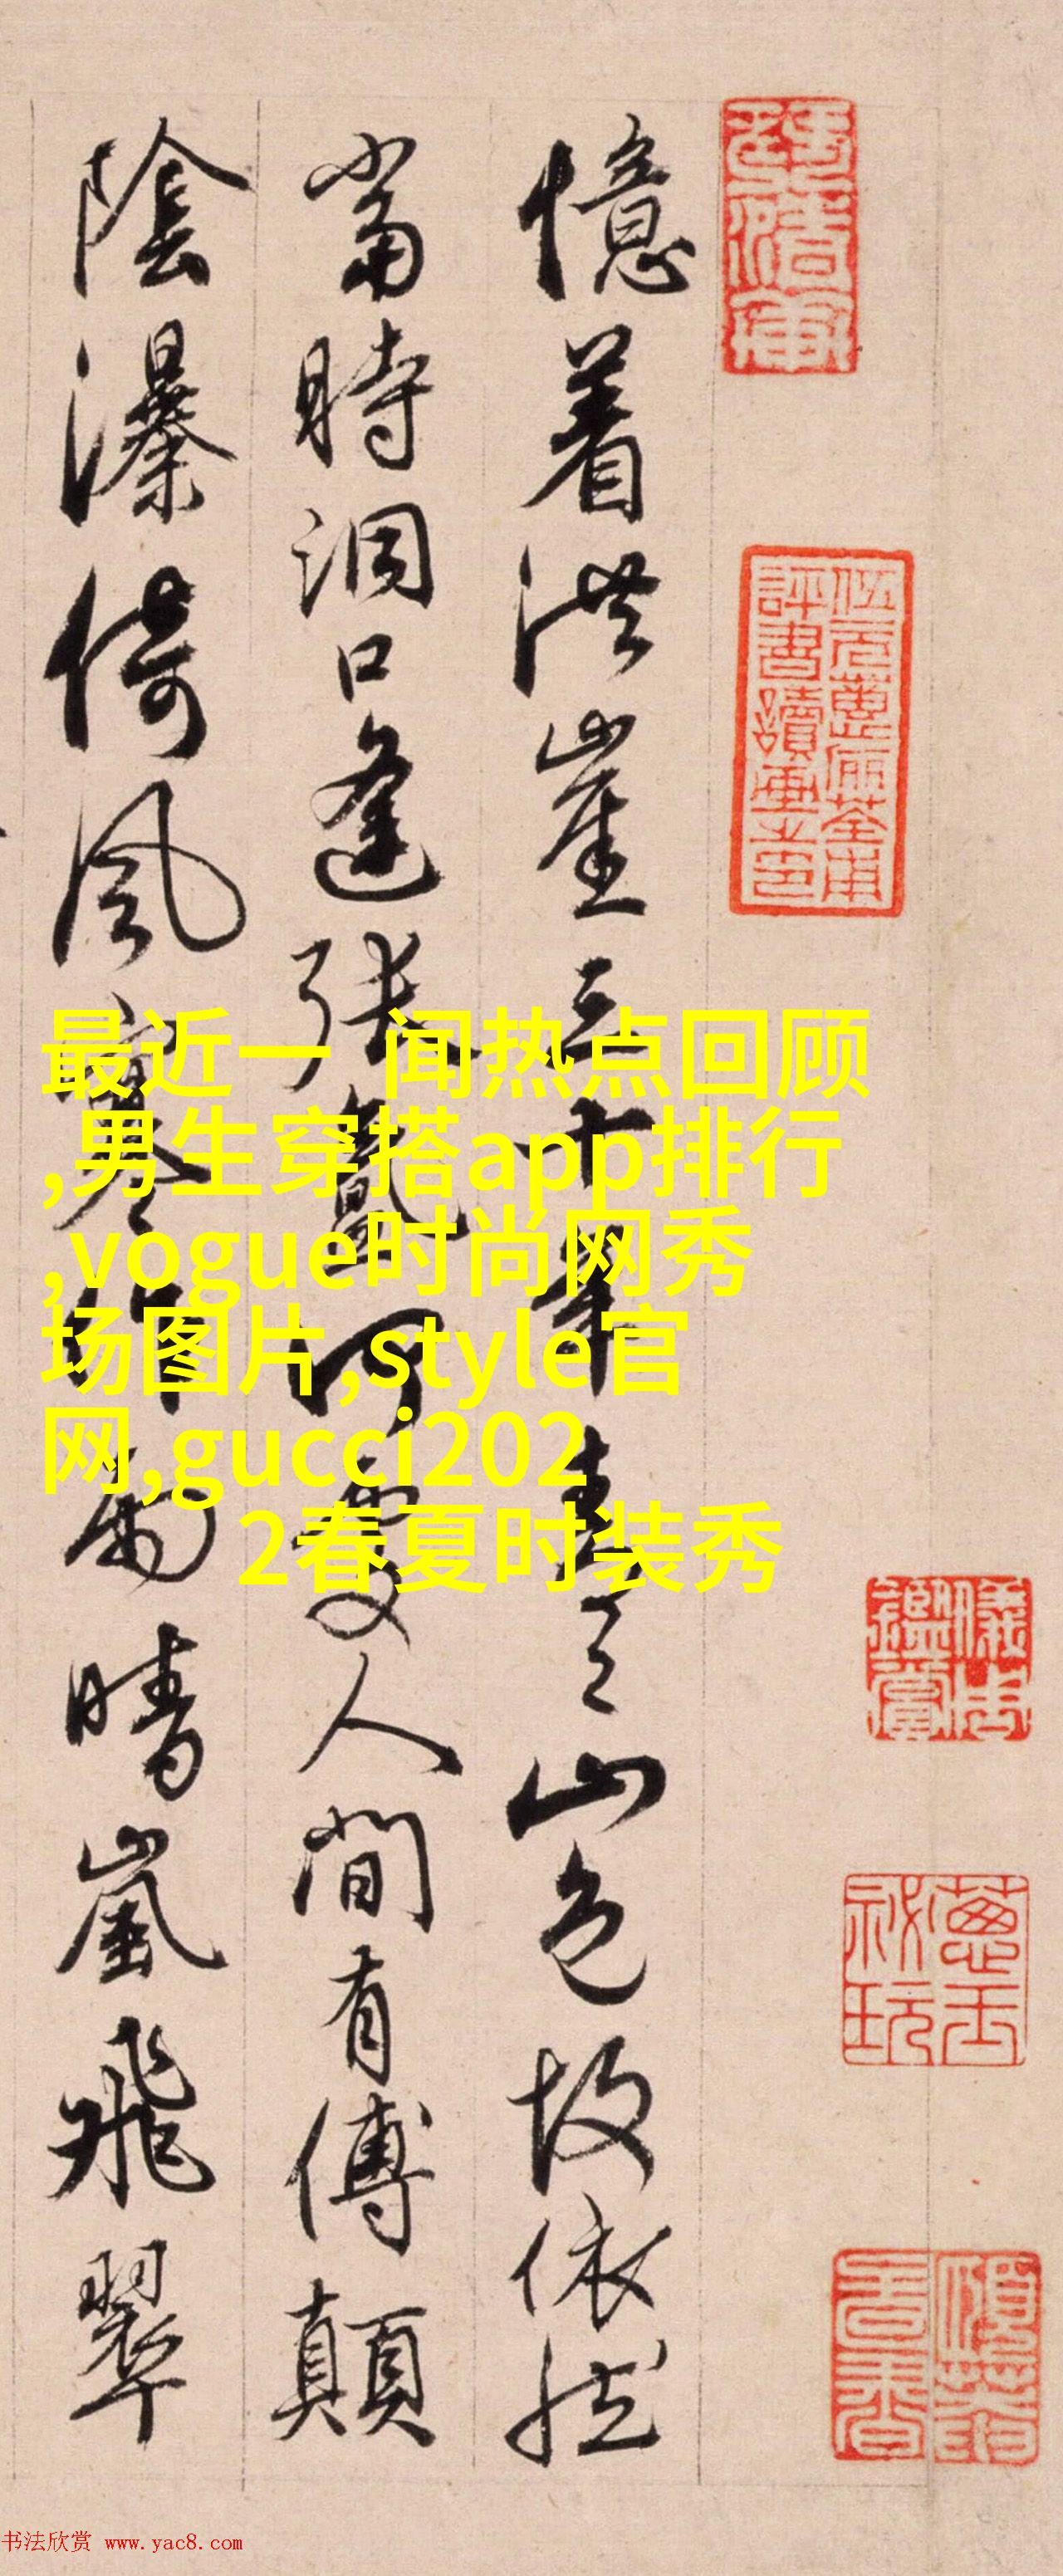 憶着洪崖三十年青々山色故依然
當時洞口逢張氲何處人間有傅顛
陰瀑倚風寒作雨晴嵐飛翠
最近一 闻热点回顾
,男生穿搭app排行
,vogue时尚网秀
场图片,style官
网,gucci202
2春夏时装秀
书法欣赏 www.yac8.com